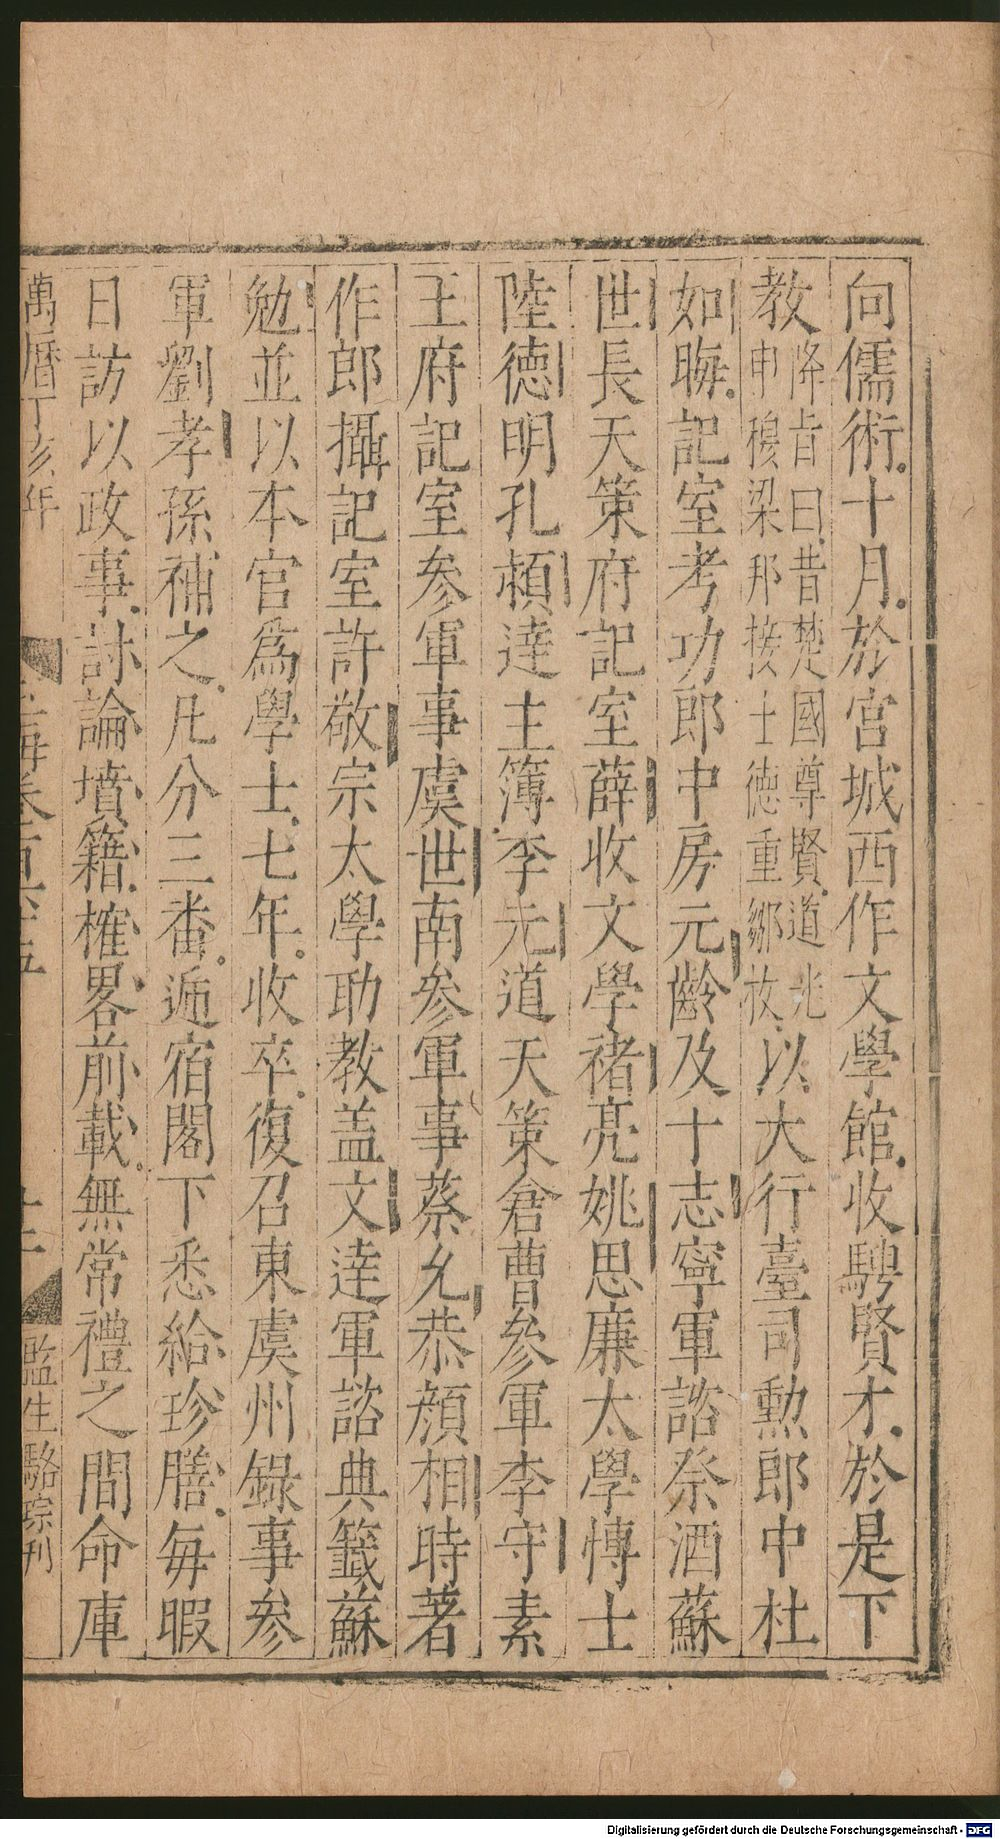 向儒術十月於宮城西作文學館收騁賢才於是下
教降旨曰昔楚國尊賢道光
申穆梁邦接士德重鄒枚以大行臺司勲郎中杜
如晦記室考功郎中房元齡及于志寧軍諮祭酒蘇
世長天策府記室薛收文學褚亮姚思廉太學博士
陸德明孔頴達主簿李𠒇道天策倉曹參軍李守素
王府記室叅軍事虞世南叅軍事蔡允恭顔相時著
作郎攝記室許敬宗太學助教蓋文達軍諮典籤蘇
勉並以本官爲學士七年收卒復召東虞州錄事叅
軍劉孝孫補之凡分三番逓宿閣下悉給珍膳每暇
日訪以政事討論墳籍榷畧前載無常禮之間命庫
萬曆丁亥年
玉海卷百六十五
十二
監生駱琮刊
Digitalisierung gefördert durch die Deutsche Forschungsgemeinschaft - DFG